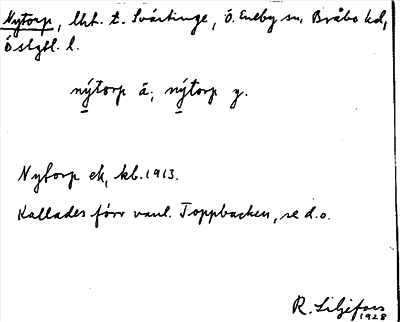 Nytorp, lht. t. Svärtinge, Ö. Eneby sn, Bråbo hd,
Östgtl. l.
nýtorp ä; nýtorp y.
Nytorp ek, kb. 1913.
Kallades förr vanl. Toppbacken, se d.o.
R. Liljefors
1928